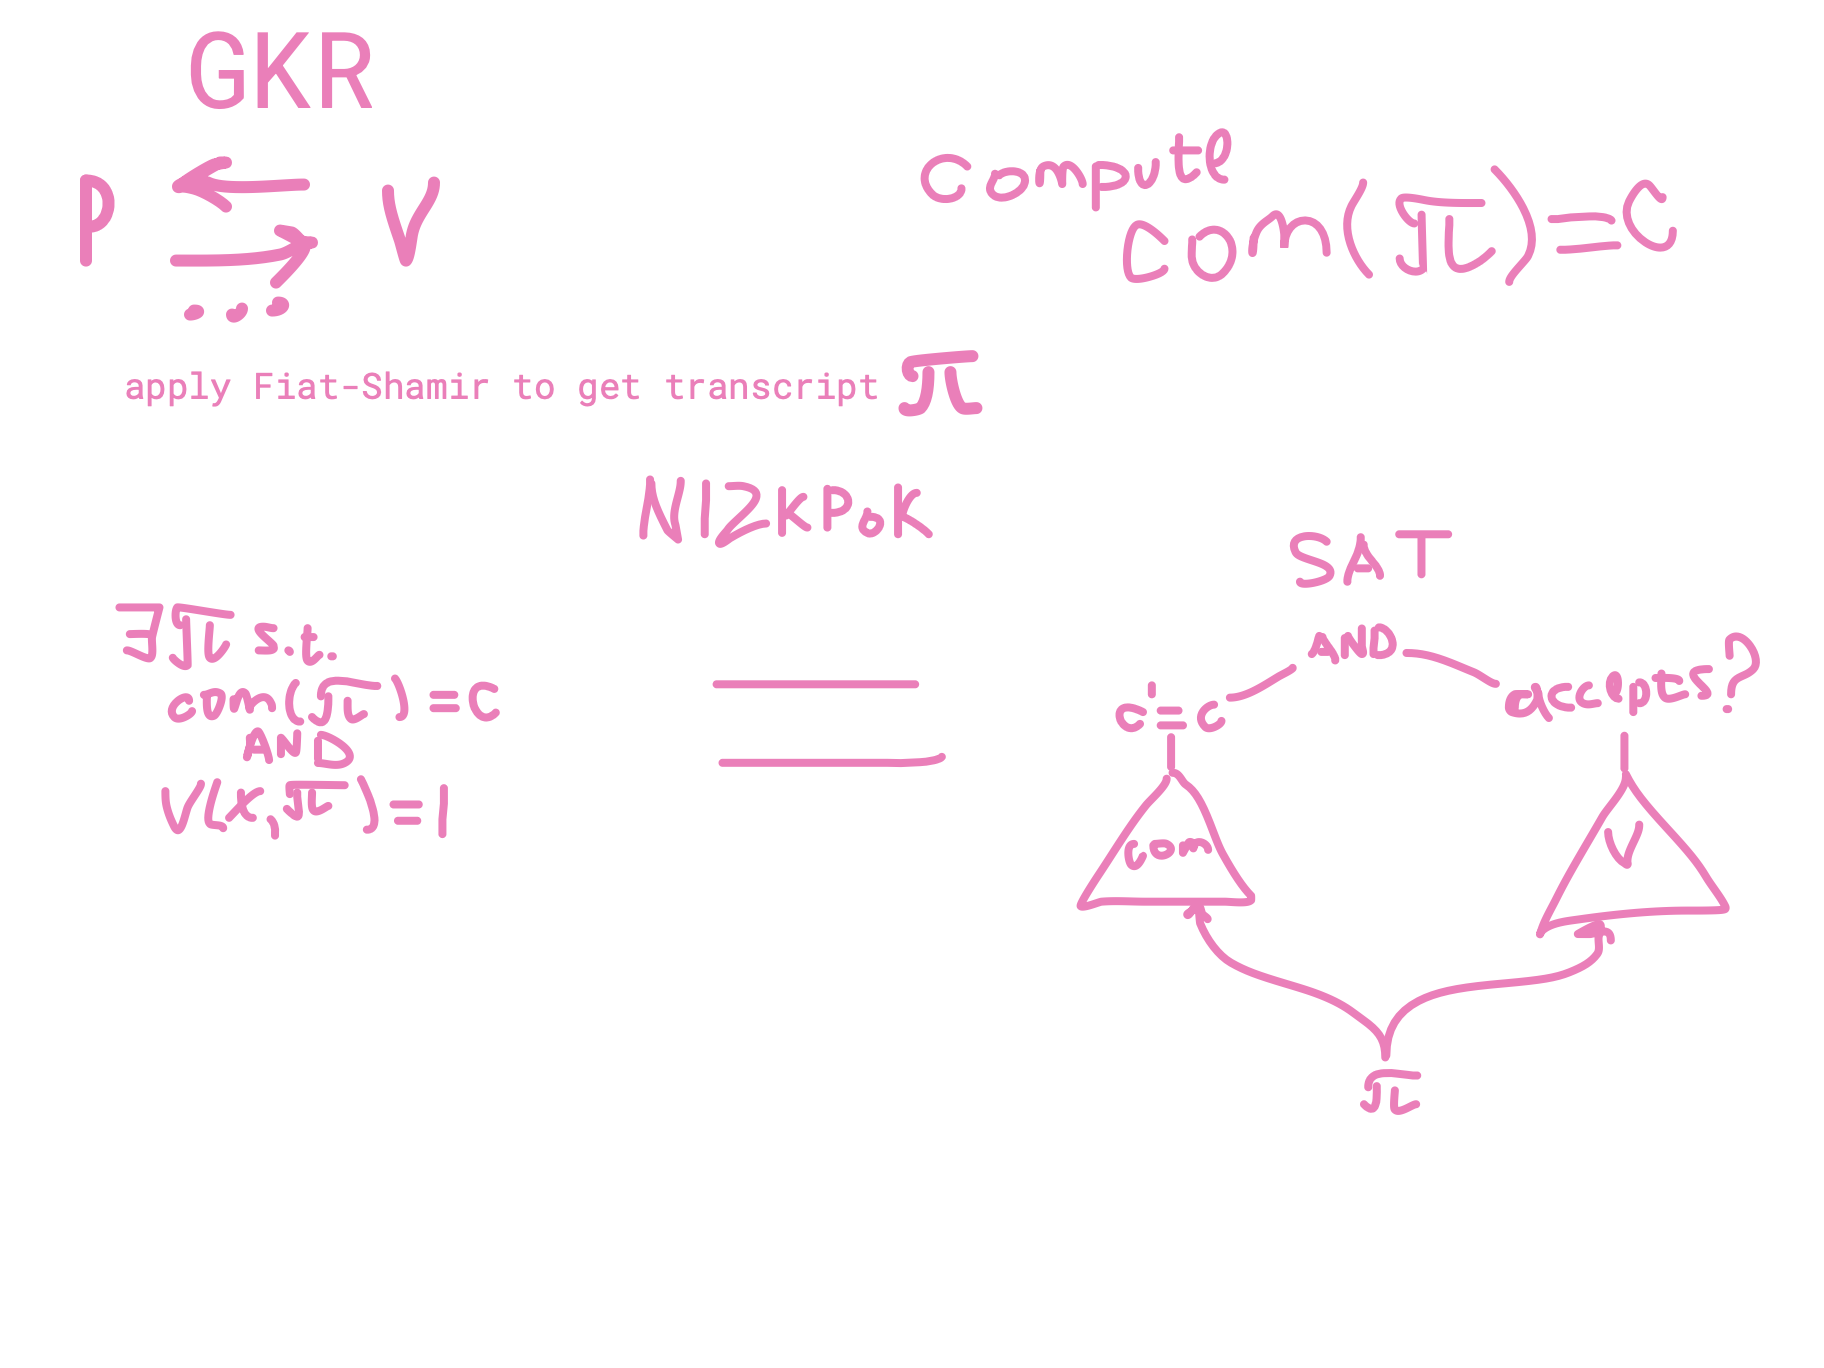 GKR
P V
...
compute
com(π)=C
apply Fiat-Shamir to get transcript π
NIZKPoK
∃π s.t.
com(π)=C
AND
V(x,π)=1
SAT
AND
c'=c
accepts?
com
V
π